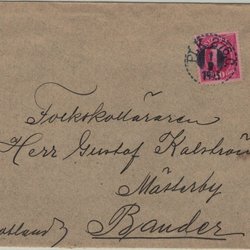 Folkskolläraren
Herr Gustaf Kalström
Mästerby
Bander